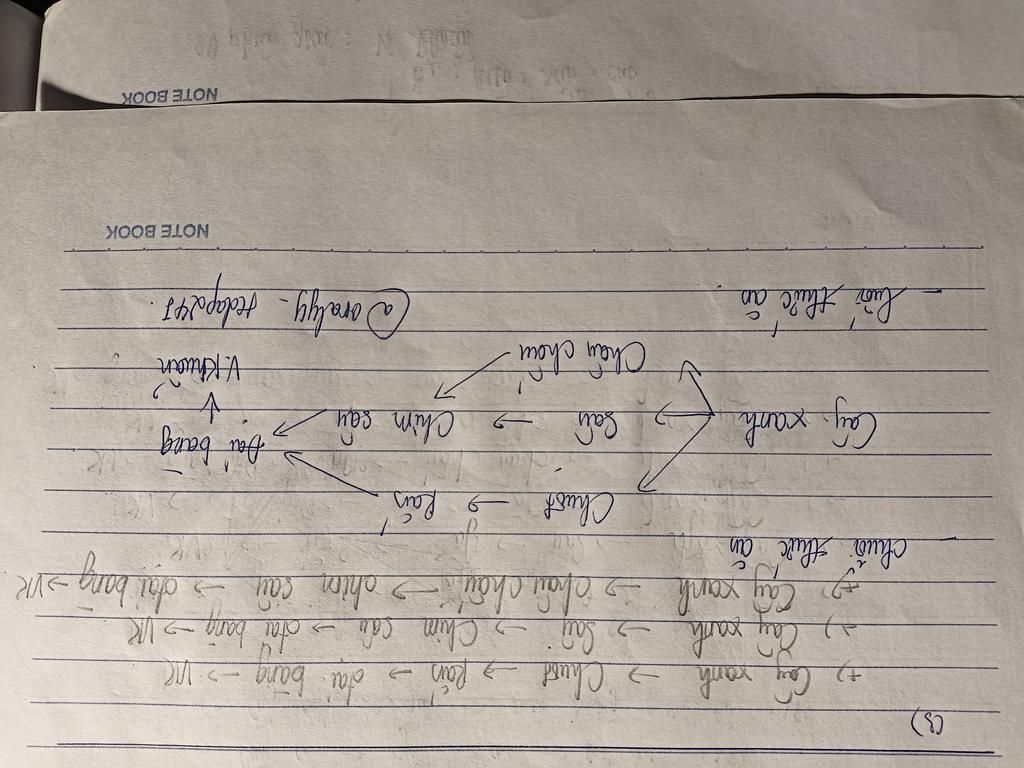 C3)
+) Cây xanh → Chuột → Rắn → đại bàng → VK
+) Cây xanh → Sâu → Chim sâu → đại bàng → VK
+) Cây xanh → châu chấu → chim sâu → đại bàng → VK
- chuỗi thức ăn
Chuột → Rắn
Cây xanh → sâu → Chim sâu
Đại bàng
Châu chấu
V.khuẩn
- Lưới thức ăn
NOTE BOOK
NOTE BOOK